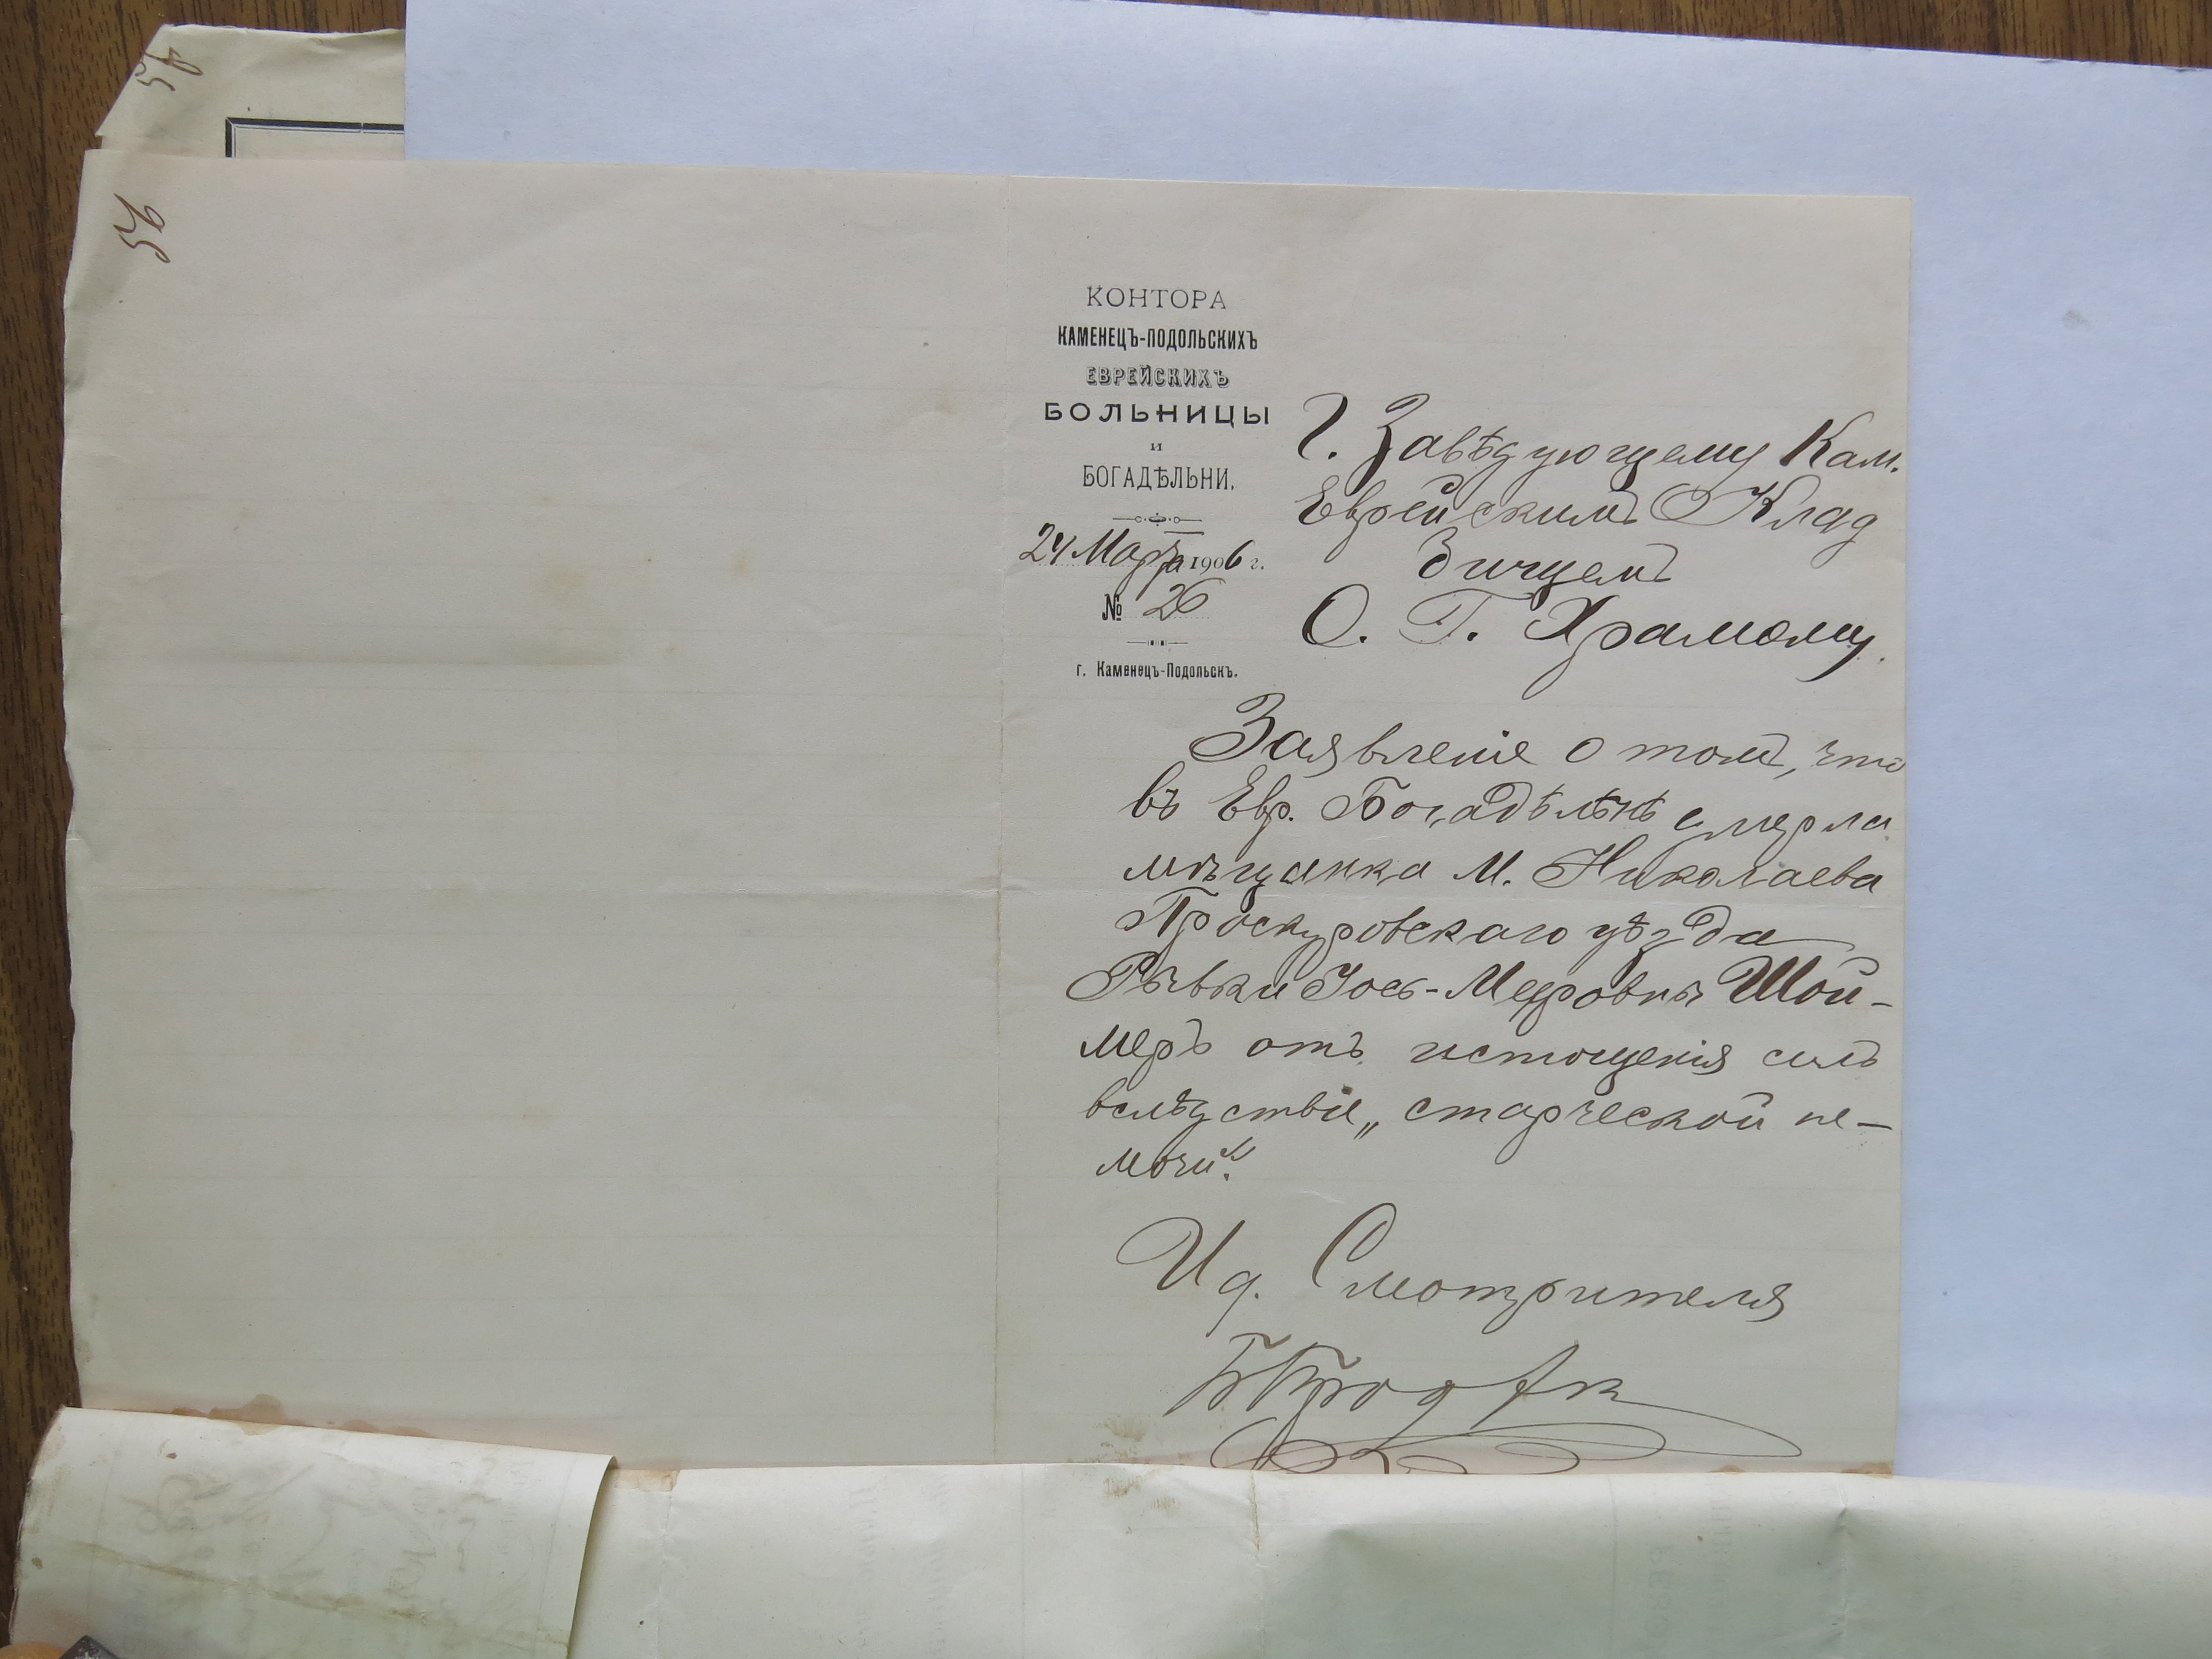 56
КОНТОРА
КАМЕНЕЦЪ-ПОДОЛЬСКИХЪ
ЕВРЕЙСКИХЪ
БОЛЬНИЦЫ
и
БОГАДѢЛЬНИ.
24 Марта 1906 г.
№ 26
г. Каменецъ-Подольскъ.
Г. Завѣдующему Кам.
Еврейскимъ Клад
бищемъ
О. Г. Храмому.
Заявленіе о томъ, что
въ Евр. Богадѣльнѣ умерла
мѣщанка М. Николаева
Проскуровскаго уѣзда
Ривки Іось-Мееровны Шой-
меръ отъ истощенія силъ
вслѣдствіе „старческой не-
мочи“.
Ид. Смотрителя